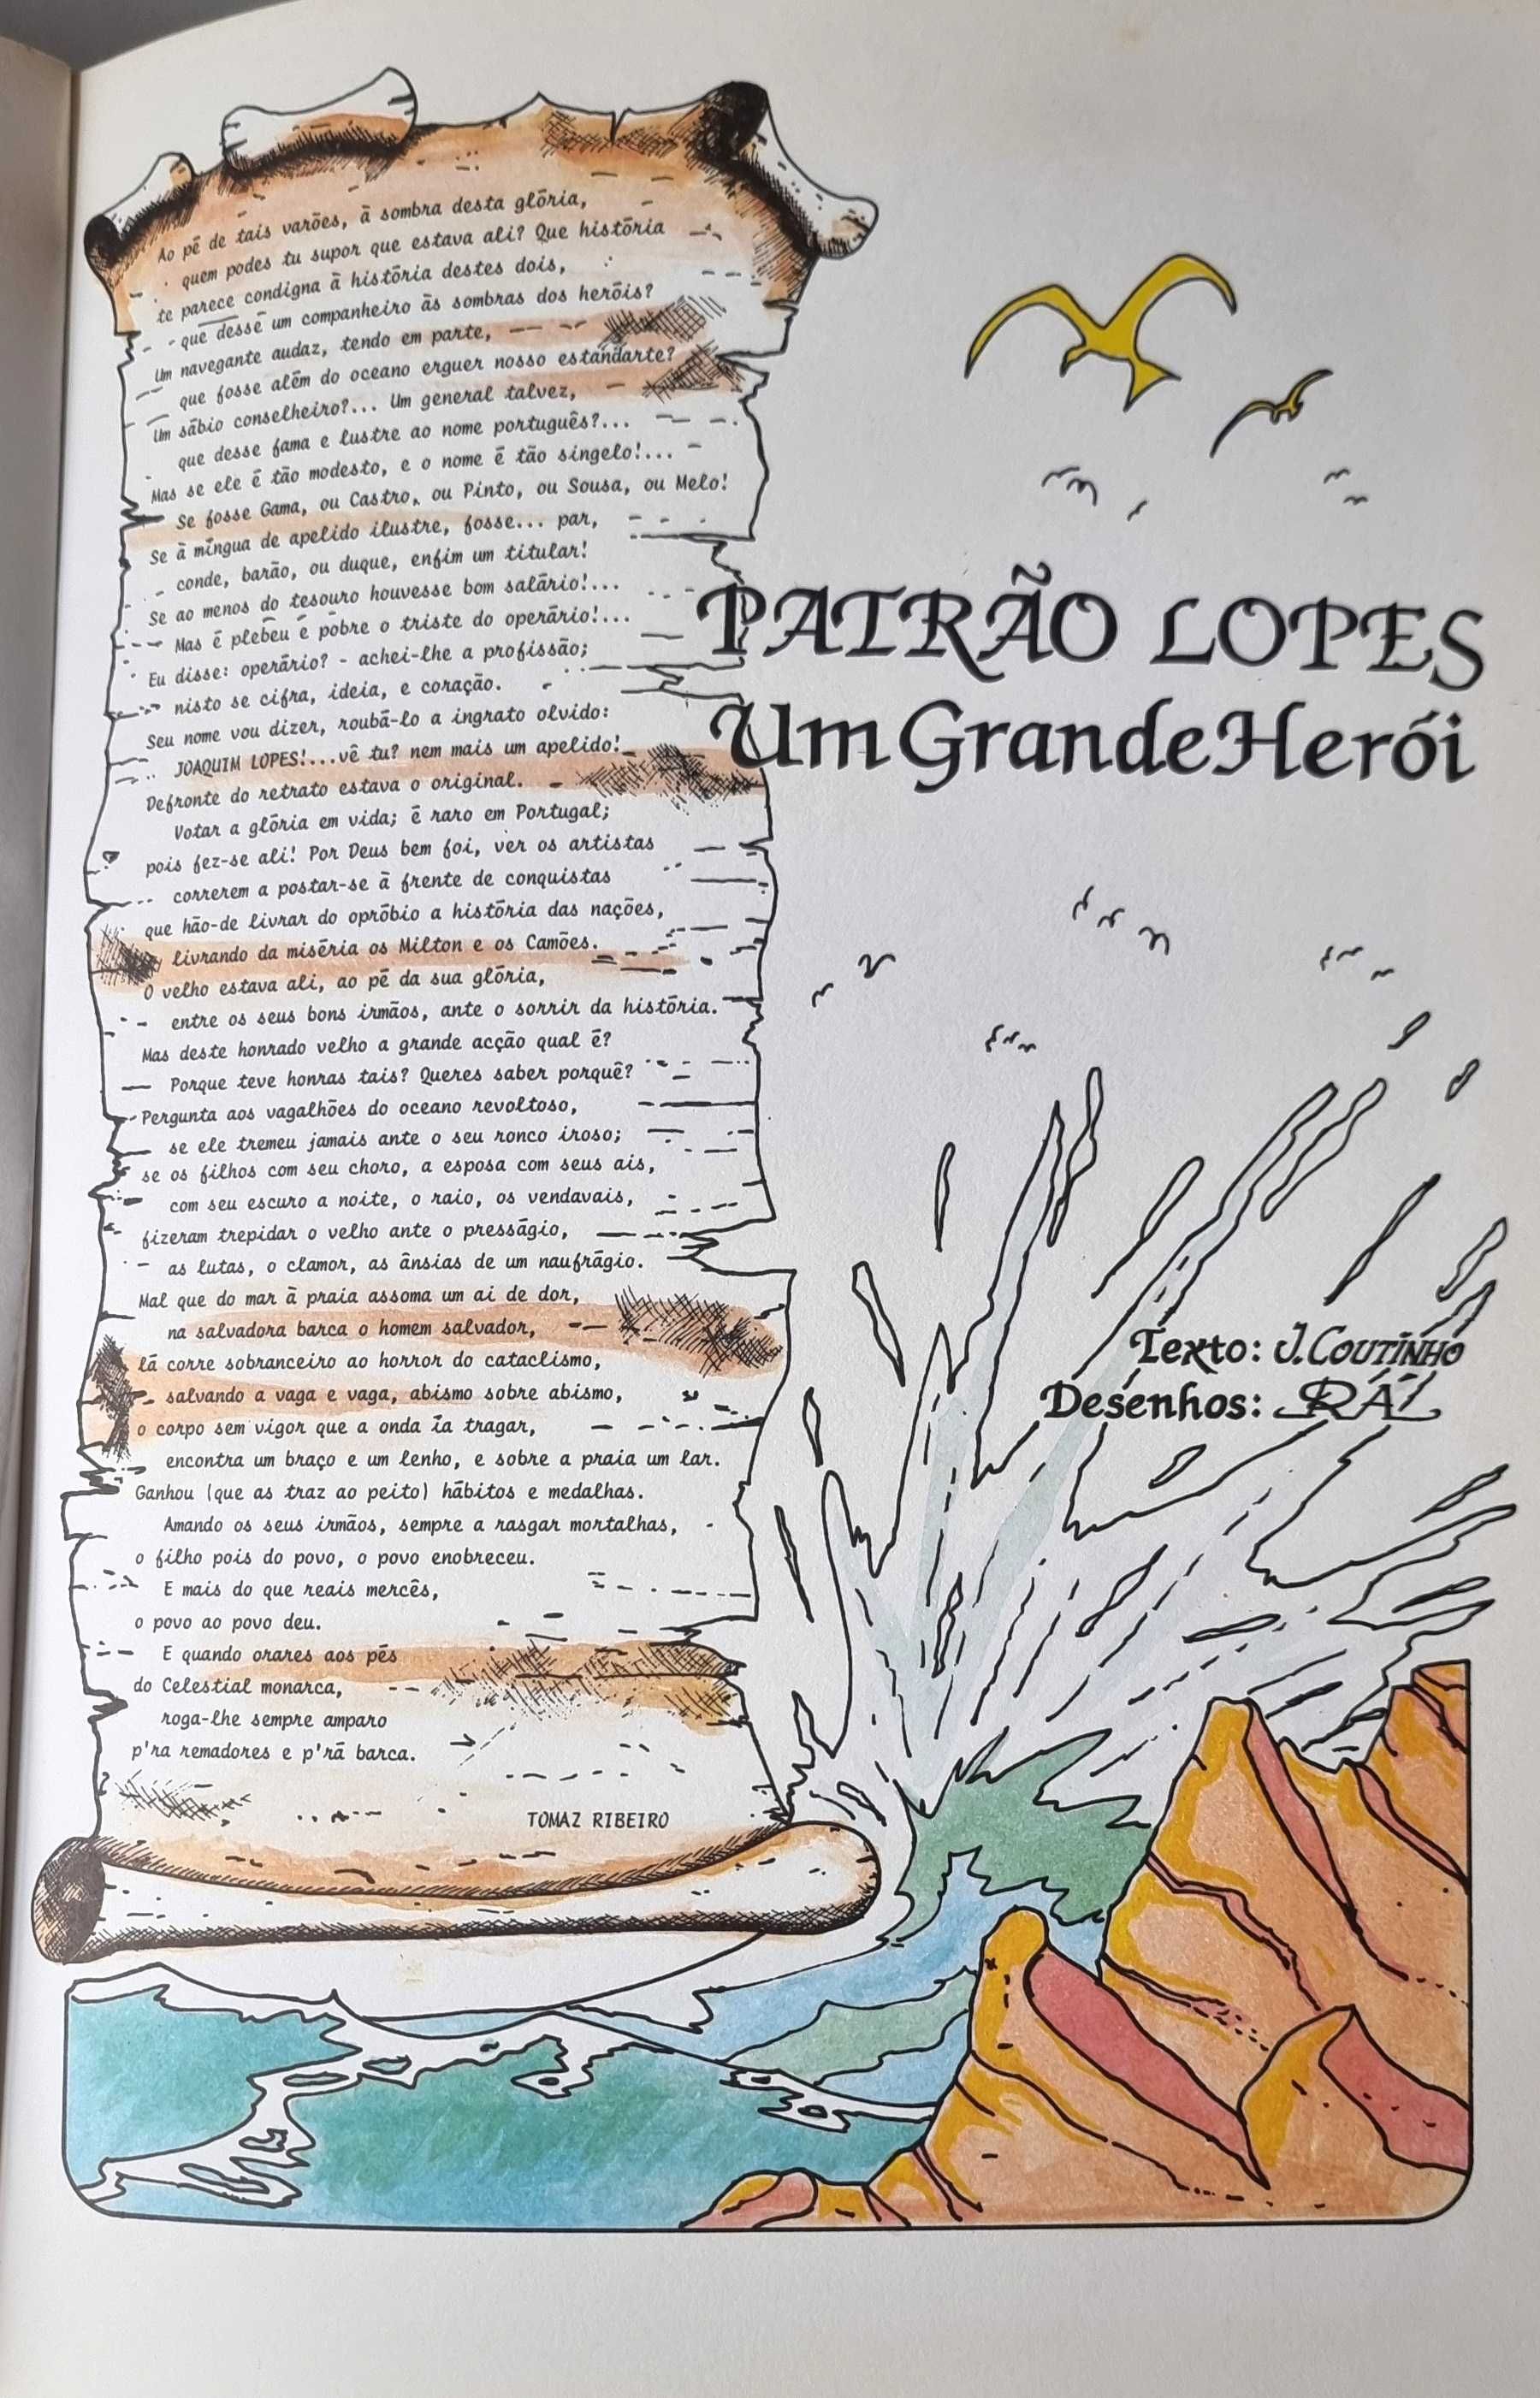 Ao pé de tais varões, à sombra desta glória,
quem podes tu supor que estava ali? Que história
te parece condigna à história destes dois,
que desse um companheiro às sombras dos heróis?
Um navegante audaz, tendo em parte,
que fosse além do oceano erguer nosso estandarte?
Um sábio conselheiro?... Um general talvez,
que desse fama e lustre ao nome português?...
Mas se ele é tão modesto, e o nome é tão singelo!...
Se fosse Gama, ou Castro, ou Pinto, ou Sousa, ou Melo!
Se à míngua de apelido ilustre, fosse... par,
conde, barão, ou duque, enfim um titular!
Se ao menos do tesouro houvesse bom salário!...
Mas é plebeu é pobre o triste do operário!...
Eu disse: operário? - achei-lhe a profissão;
nisto se cifra, ideia, e coração.
Seu nome vou dizer, roubá-lo a ingrato olvido:
JOAQUIM LOPES!...vê tu? nem mais um apelido!
Defronte do retrato estava o original.
Votar a glória em vida; é raro em Portugal;
pois fez-se ali! Por Deus bem foi, ver os artistas
correrem a postar-se à frente de conquistas
que hão-de livrar do opróbio a história das nações,
livrando da miséria os Milton e os Camões.
O velho estava ali, ao pé da sua glória,
entre os seus bons irmãos, ante o sorrir da história.
Mas deste honrado velho a grande acção qual é?
Porque teve honras tais? Queres saber porquê?
Pergunta aos vagalhões do oceano revoltoso,
se ele tremeu jamais ante o seu ronco iroso;
se os filhos com seu choro, a esposa com seus ais,
com seu escuro a noite, o raio, os vendavais,
fizeram trepidar o velho ante o presságio,
as lutas, o clamor, as ânsias de um naufrágio.
Mal que do mar à praia assoma um ai de dor,
na salvadora barca o homem salvador,
lá corre sobranceiro ao horror do cataclismo,
salvando a vaga e vaga, abismo sobre abismo,
o corpo sem vigor que a onda ía tragar,
encontra um braço e um lenho, e sobre a praia um lar.
Ganhou (que as traz ao peito) hábitos e medalhas.
Amando os seus irmãos, sempre a rasgar mortalhas,
o filho pois do povo, o povo enobreceu.
E mais do que reais mercês,
o povo ao povo deu.
E quando orares aos pés
do Celestial monarca,
roga-lhe sempre amparo
p'ra remadores e p'rá barca.
TOMAZ RIBEIRO
PATRÃO LOPES
Um Grande Herói
Texto: J. COUTINHO
Desenhos: RÁL